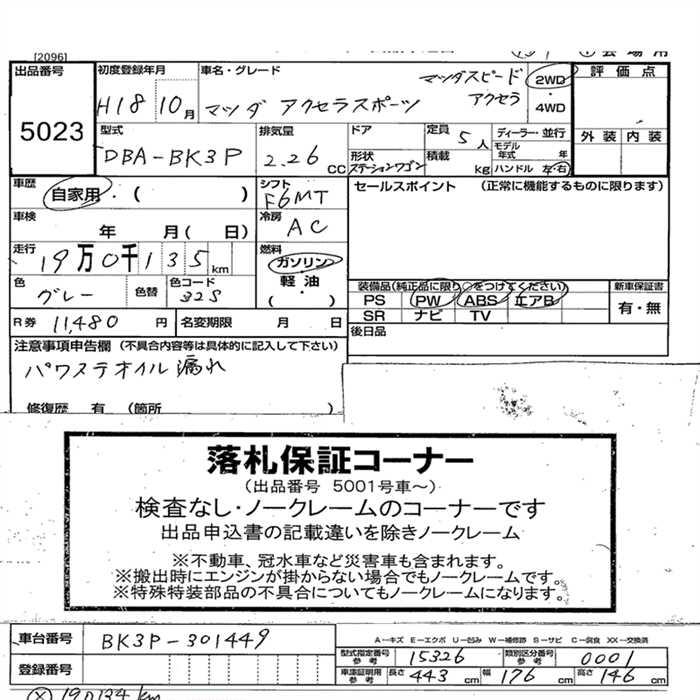 [2096]
出品番号 初度登録年月 車名・グレード マツダスピード 2WD 評価点
5023 H18 10月 マツダ アクセラスポーツ アクセラ ・4WD
型式 排気量 ドア 定員 5人 ディーラー・並行 外装 内装
DBA-BK3P 2.26 CC 形状 ステーションワゴン 積載 kg モデル年式 年
ハンドル 左・右
車歴 自家用・( ) シフト F6MT セールスポイント (正常に機能するものに限ります)
車検 年 月(日) 冷房 AC
走行 19万0千135km 燃料 ガソリン・軽油・( )
色 グレー 色替 色コード 32S
装備品(純正品に限り○をつけてください) 新車保証書
PS PW ABS エアB 有・無
SR ナビ TV
R券 11,480円 名変期限 月 日 後日品
注意事項申告欄 (不具合内容等は具体的に記入して下さい)
パワステオイル漏れ
修復歴 有 (箇所 )
落札保証コーナー
(出品番号 5001号車〜)
検査なし・ノークレームのコーナーです
出品申込書の記載違いを除きノークレーム
※不動車、冠水車など災害車も含まれます。
※搬出時にエンジンが掛からない場合でもノークレームです。
※特殊特装部品の不具合についてもノークレームになります。
車台番号 BK3P-301449 A-キズ E-エクボ U-凹み W-補修跡 S-サビ C-腐食 XX-交換済
型式指定番号参考 15326 類別区分番号参考 0001
登録番号 車庫証明用参考 長さ 443cm 幅 176cm 高さ 146cm
190134 km